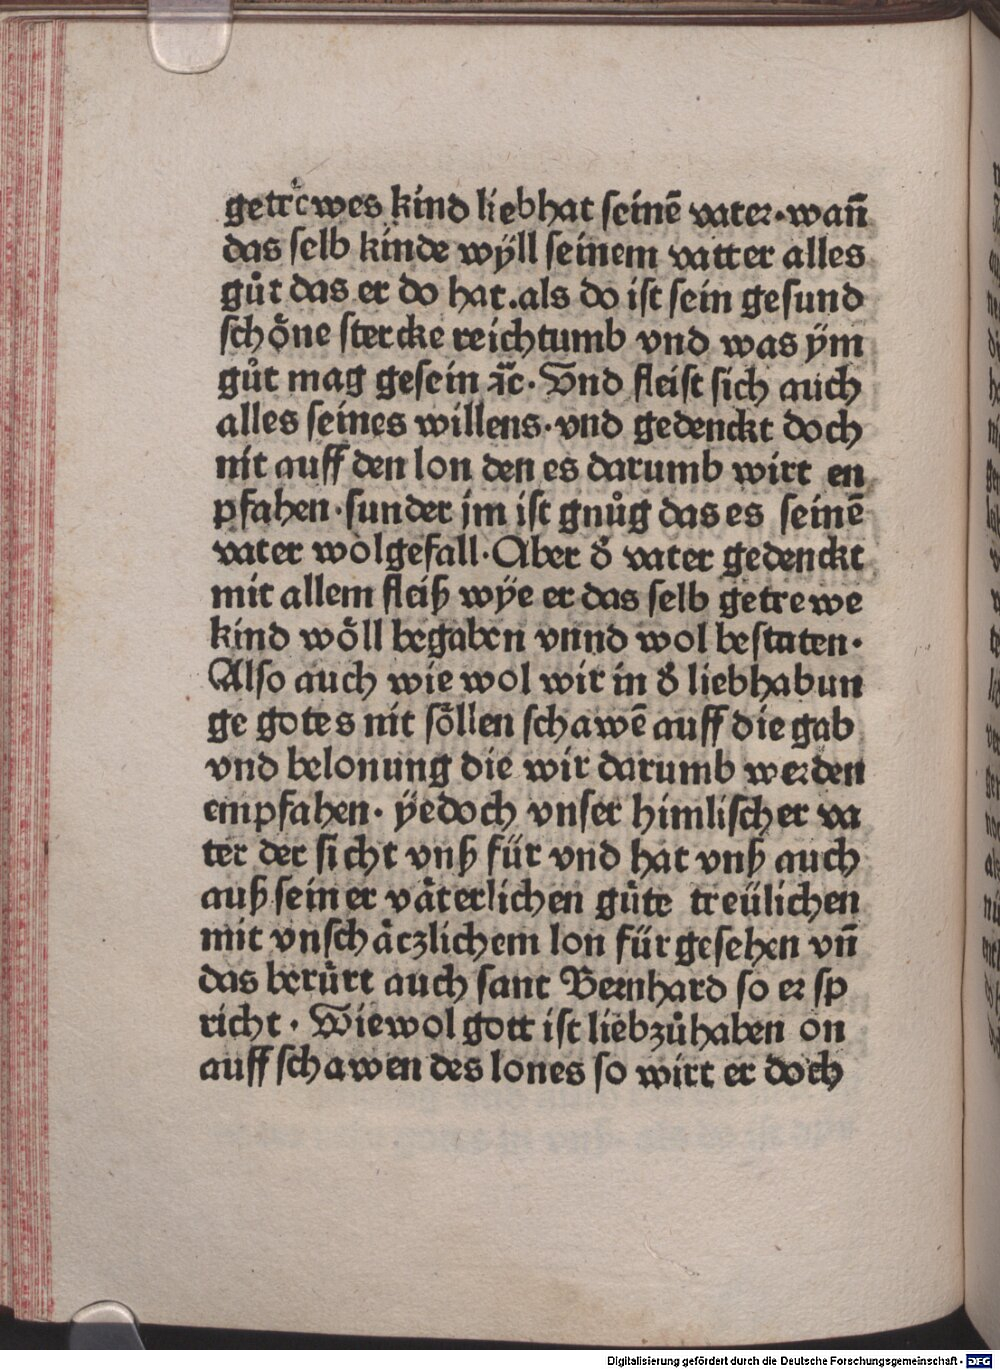 getrewes kind liebhat seinē vater·wañ
das selb kinde wÿll seinem vatter alles
gůt das er do hat.als do ist sein gesund
schöne stercke reichtumb vnd was ÿm
gůt mag gesein ⁊c̄·Vnd fleist sich auch
alles seines willens·vnd gedenckt doch
nit auff den lon den es darumb wirt en
pfahen·sunder im ist gnůg das es seinē
vater wolgefall·Aber d̕ vater gedenckt
mit allem fleiß wÿe er das selb getrewe
kind wöll begaben vnnd wol bestaten·
Also auch wie wol wir in d̕ liebhabun
ge gotes nit söllen schawē auff die gab
vnd belonung die wir darumb werden
empfahen· ÿedoch vnser himlischer va
ter der sicht vnß für vnd hat vnß auch
auß seiner väterlichen güte treülichen
mit vnschäczlichem lon für gesehen vñ
das berürt auch sant Bernhard so er sp
richt· Wiewol gott ist liebzůhaben on
auff schawen des lones so wirt er doch
Digitalisierung gefördert durch die Deutsche Forschungsgemeinschaft · DFG